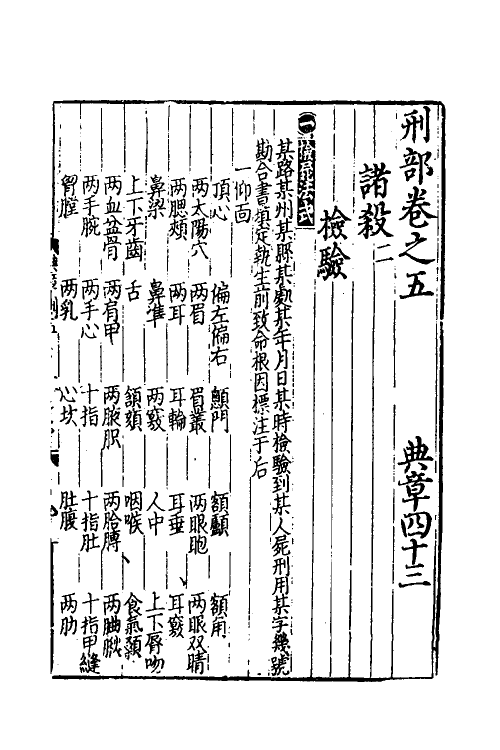 刑部卷之五 典章四十三
諸殺二
檢驗
檢屍法式
某路某州某縣某處某年月日某時檢驗到某人屍刑用某字幾號
勘合書填定執生前致命根因標注于后
一仰面
頂心 偏左偏右 顖門 額顱 額角
两太陽穴 两眉 眉叢 两眼胞 两眼双睛
两腮頰 两耳 耳輪 耳垂 耳竅
鼻梁 鼻準 两竅 人中 上下唇吻
上下牙齒 舌 頷頦 咽喉 食氣顙
两血盆骨 两肩甲 两腋胑 两胳膊 两䏏䐐
两手腕 两手心 十指 十指肚 十指甲縫
胷膛 两乳 心坎 肚腹 两肋